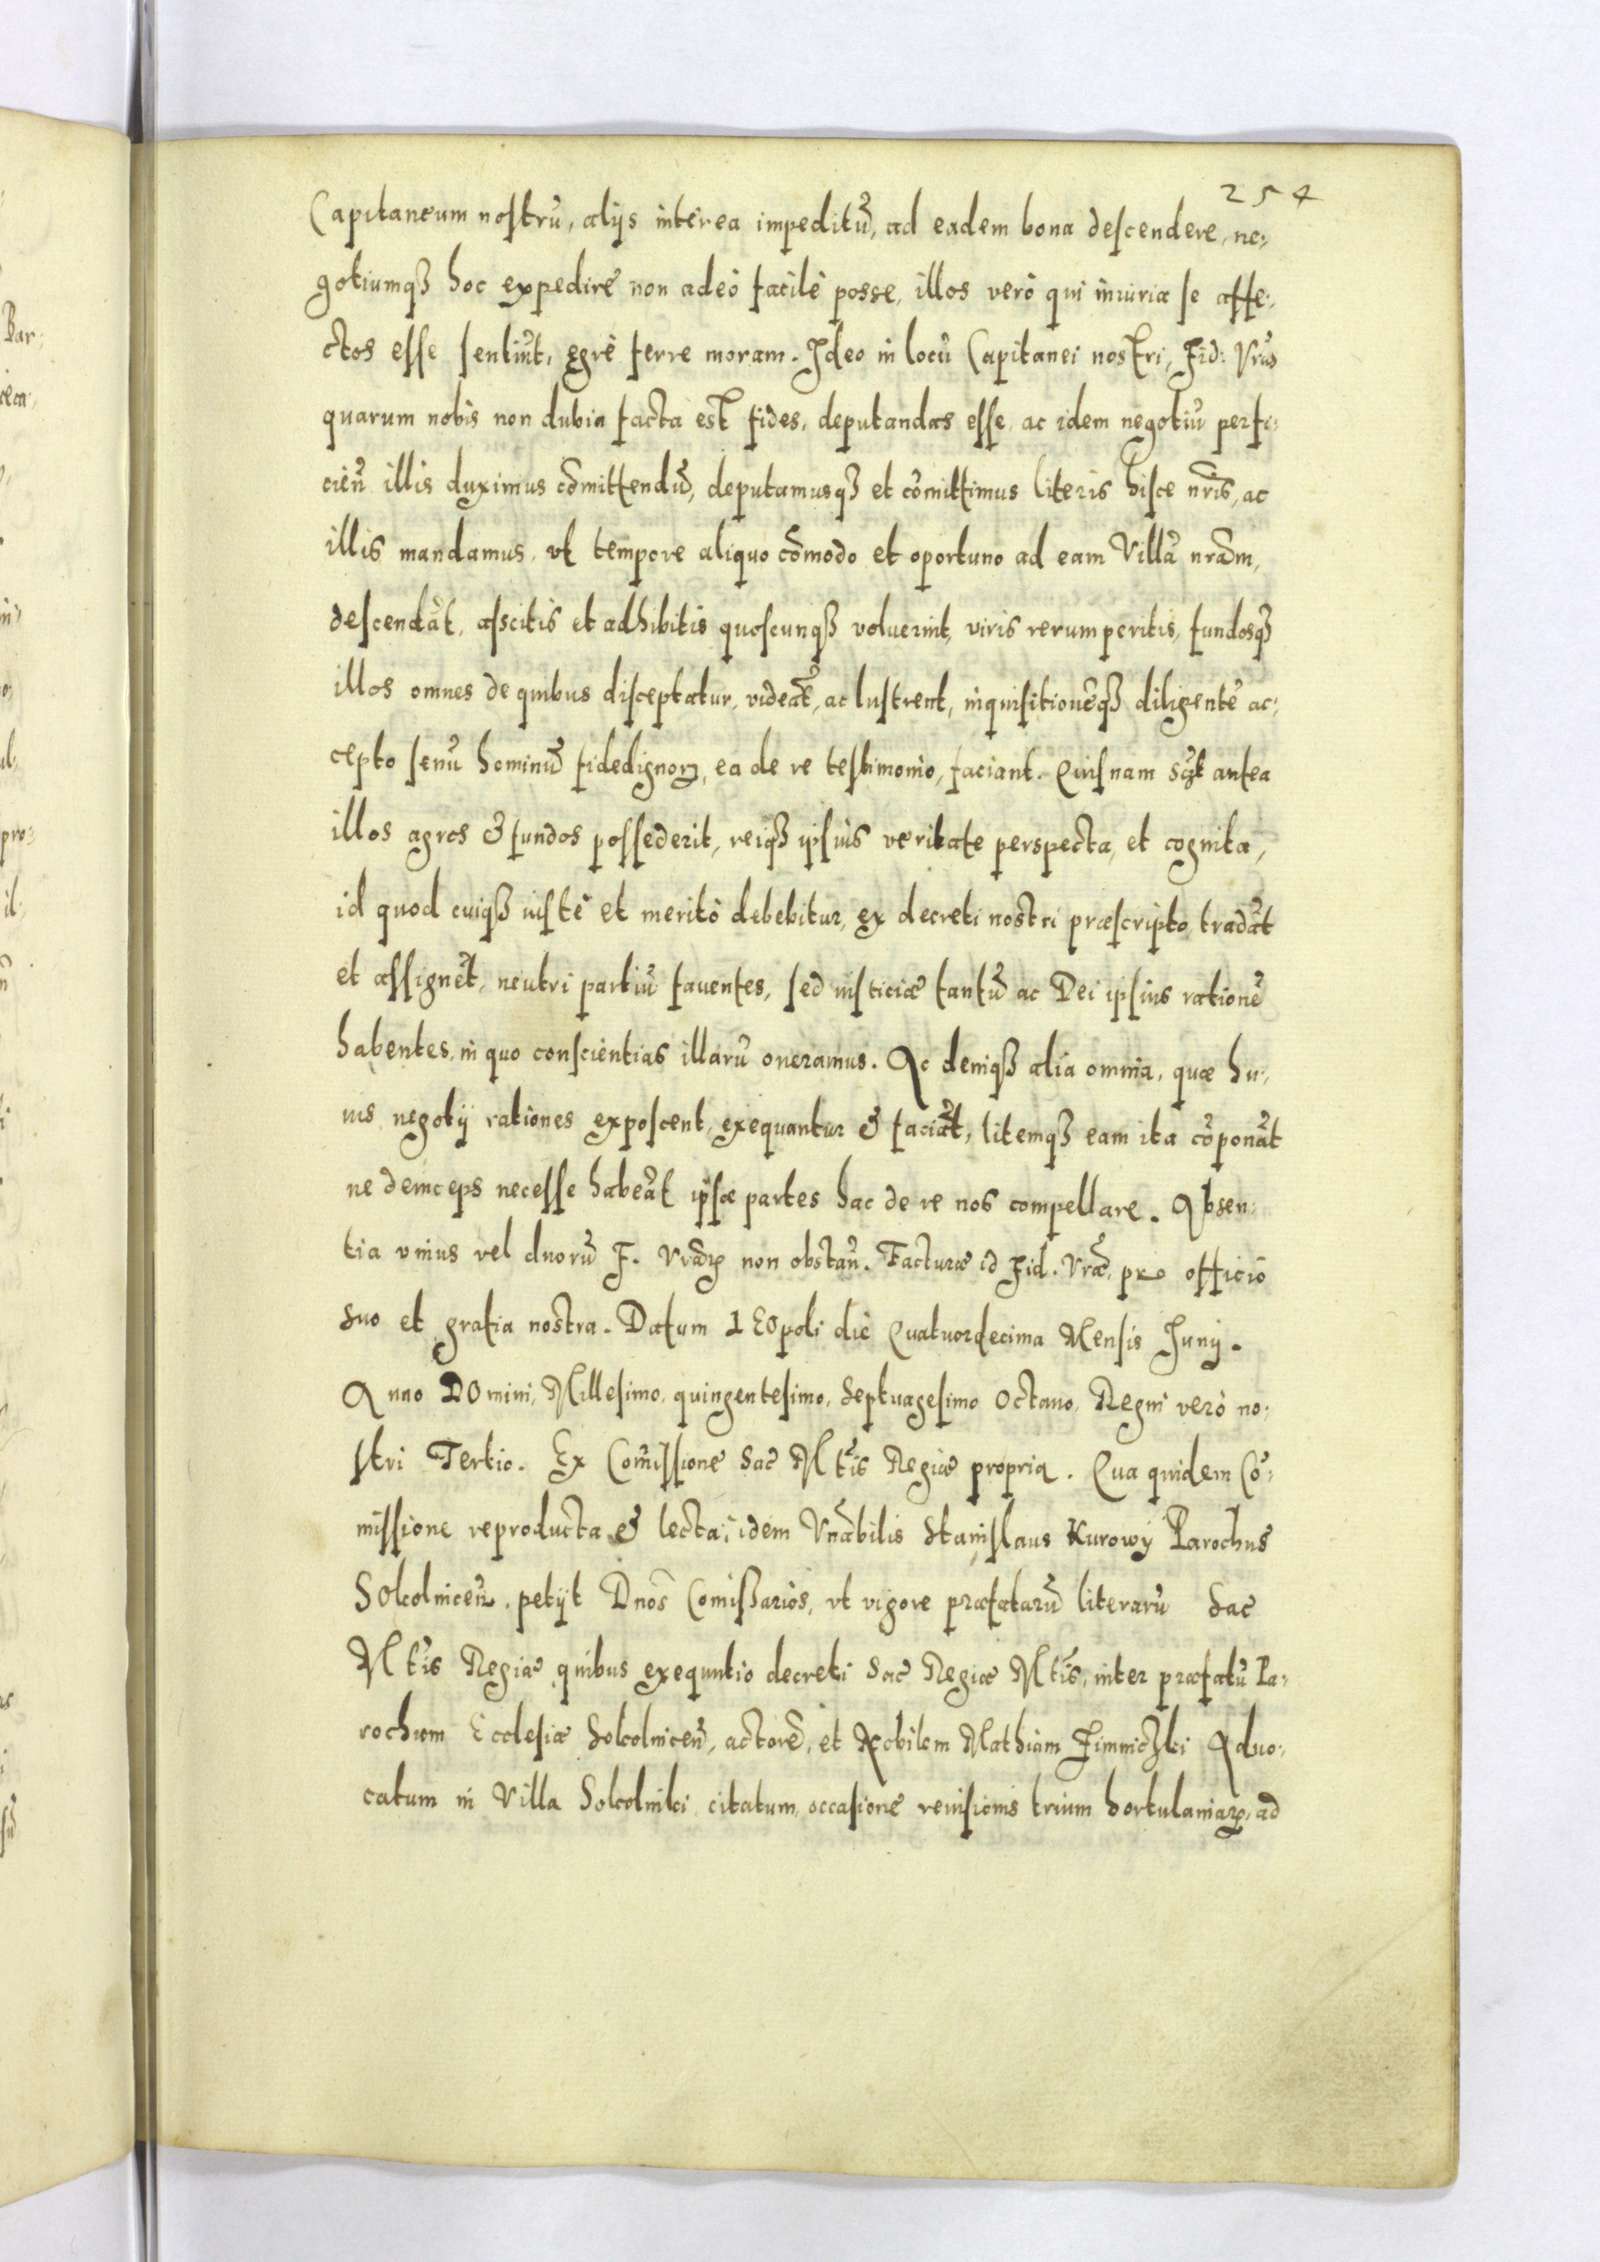 254
Capitaneum nostrū, alijs interea impeditū, ad eadem bona descendere, ne:
gotiumqȝ hoc expedire non adeò facilè posse, illos verò qui iniuria se affe:
ctos esse sentiūt, ęgrè ferre moram. Ideo in locū Capitanei nostri, Fid: Vrās
quarum nobis non dubia facta est fides, deputandas esse, ac idem negotiū perfi:
cień illis duximus cōmittendū, deputamusqȝ et cōmittimus literis hisce nr̄is, ac
illis mandamus, vt tempore aliquo cōmodo et oportuno ad eam Villā nrām,
descendāt, ascitis et adhibitis quoscunqȝ voluerint, viris rerum peritis, fundosqȝ
illos omnes de quibus disceptatur, videāt, ac lustrent, inquisitionēqȝ diligentē ac:
cepto senū hominū fidedignorꝝ, ea de re testimonio, faciant. Quisnam sc̨t antea
illos agros & fundos possederit, reiqȝ ipsius veritate perspecta, et cognita,
id quod cuiqȝ iustè et meritò debebitur, ex decreti nostri præscripto, tradāt
et assignēt, neutri partiū fauentes, sed iusticiæ tantū ac Dei ipsius rationē
habentes, in quo conscientias illarū oneramus. Ac deniqȝ alia omnia, quæ hu:
ius negotij rationes exposcent, exequantur & faciāt, litemqȝ eam ita cōponāt
ne deinceps necesse habeāt ipsæ partes hac de re nos compellare. Absen:
tia vnius vel duorū F. Vrārꝝ non obstań. Facturæ id Fid. Vræ, pro officio
suo et gratia nostra. Datum LEOpoli die Quatuordecima Mensis Junij.
Anno DOmini, Millesimo, quingentesimo, Septuagesimo Octauo, Regni verò no:
stri Tertio. Ex Com̄issione Sac̄ Mt̄is Regiæ propria. Qua quidem Cō:
missione reproducta & lecta, idem Vnābilis Stanislaus Kurowÿ Parochus
SOkolniceń. petijt Dnōs Comißarios, vt vigore præfatarū literarū Sac̄
Mt̄is Regiæ quibus exequutio decreti Sac̄ Regiæ Mt̄is, inter præfatū Pa:
rochum Ecclesiæ Sokolniceń, actorē, et Nobilem Mathiam Zimniczki Aduo:
catum in Villa Sokolniki citatum, occasione reuisionis trium hortulaniarꝝ, ad